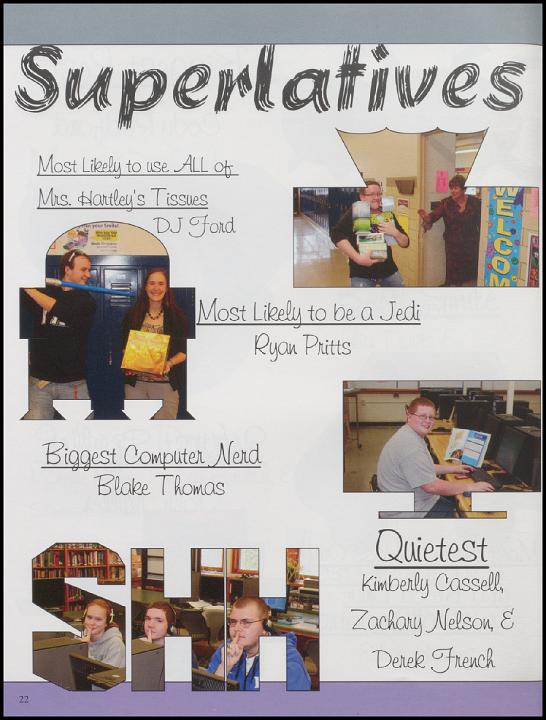 Superlatives
Most Likely to use ALL of
Mrs. Hartley's Tissues
DJ Ford
WELCOM
Most Likely to be a Jedi
Ryan Pritts
Biggest Computer Nerd
Blake Thomas
Quietest
Kimberly Cassell,
Zachary Nelson, &
Derek French
22